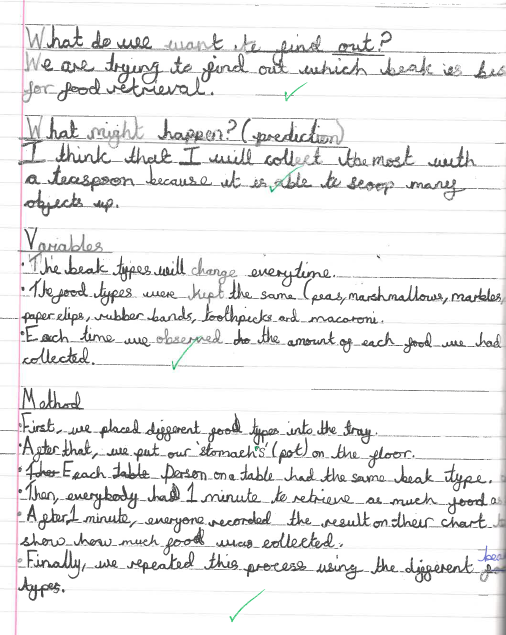 What do we want to find out?
We are trying to find out which beak is bes
for food retrieval.
What might happen? (prediction)
I think that I will collect the most with
a teaspoon because it is able to scoop many
objects up.
Variables
• The beak types will change everytime.
• The food types were kept the same (peas, marshmallows, marbles,
paper clips, rubber bands, toothpicks and macaroni.
• Each time we observed the amount of each food we had
collected.
Method
• First, we placed different food types into the tray.
• After that, we put our 'stomach's' (pot) on the floor.
• Each table person on a table had the same beak type.
• Then, everybody had 1 minute to retrieve as much food a
• After 1 minute, everyone recorded the result on their chart t
show how much food was collected.
• Finally, we repeated this process using the different beak
types.